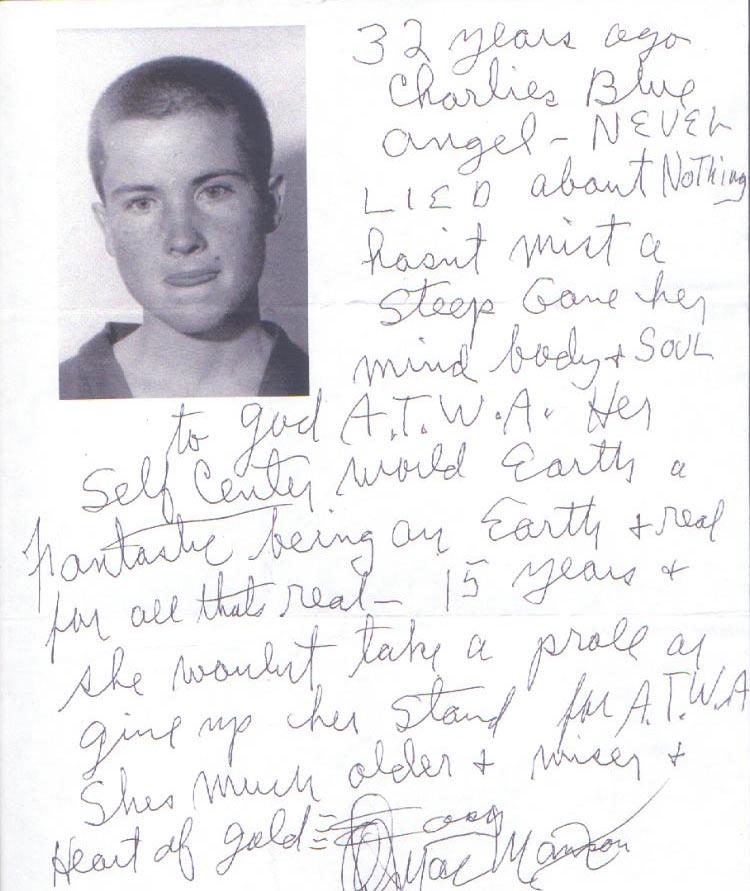 32 years ago
Charlies Blue
angel - NEVER
LIED about Nothing
hasnt mist a
Steep Gave her
mind body + SOUL
to god A.T.W.A. Her
Self Center world Earth a
fantastic being on Earth + real
for all thats real - 15 years +
she wouldnt take a prole or
give up her Stand for A.T.W.A
Shes much older + wiser +
Heart of gold easy
Manson